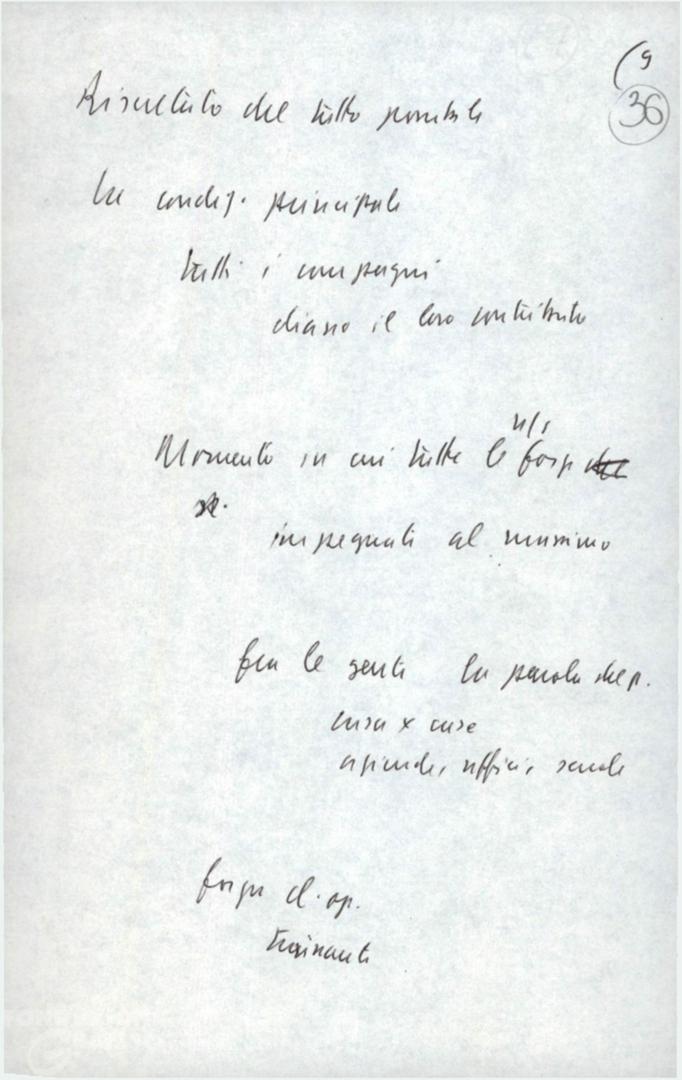 (9
36
Risultato del tutto possibile
la condiz. principale
tutti i compagni
diano il loro contributo
n/s
Momento in cui tutte le forze
impegnati al massimo
fra le genti la parola del p.
casa x casa
aziende, uffici, scuole
forza cl. op.
trainante